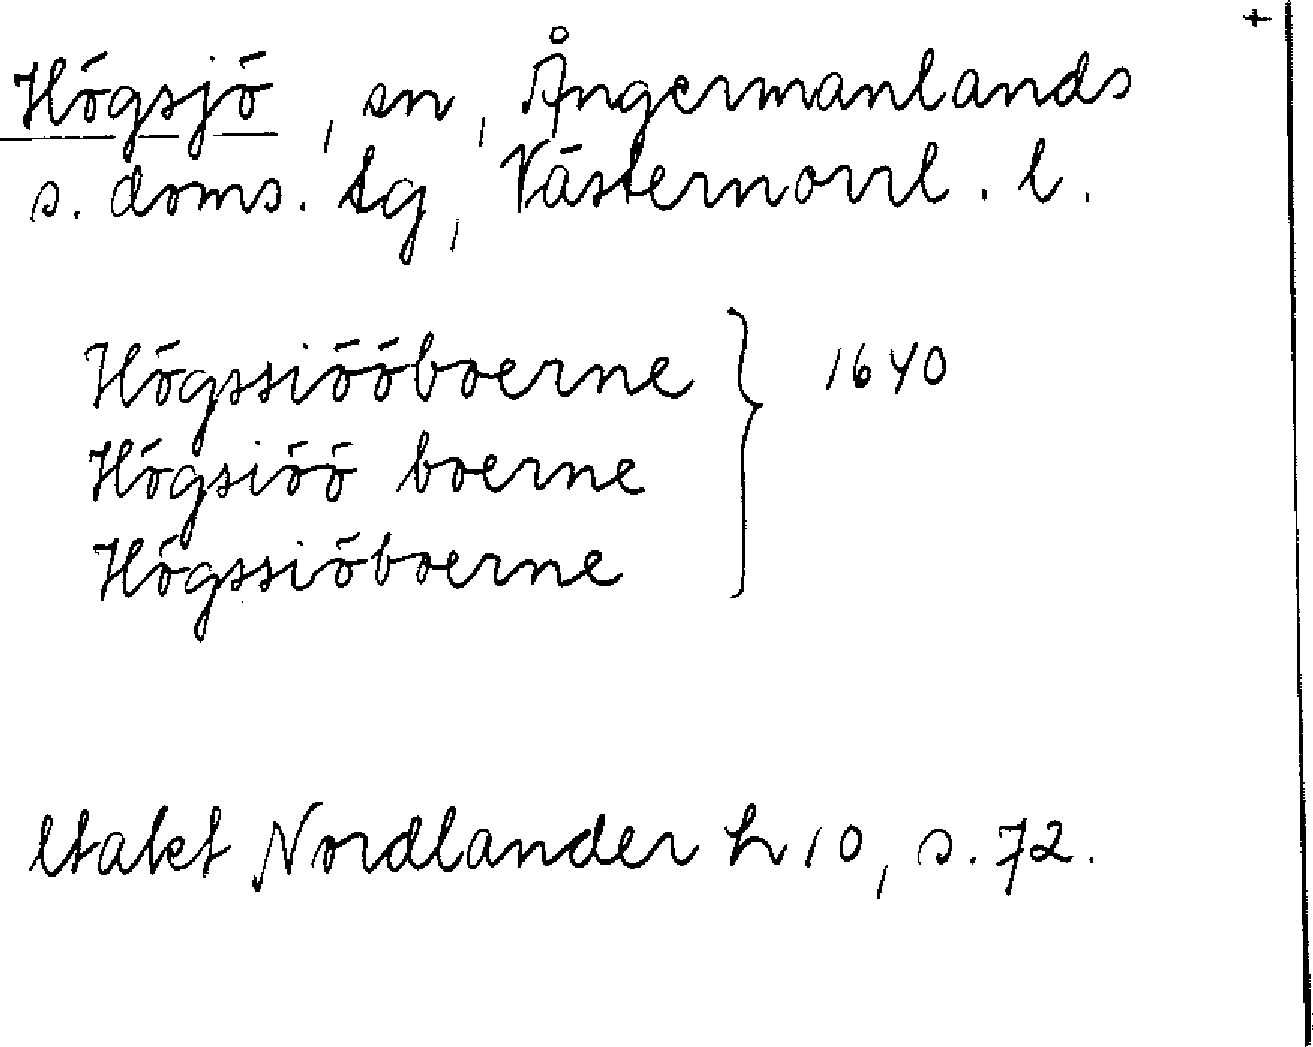 +
Högsjö, sn, Ångermanlands
s. doms. tg, Västernorrl. l.
Högssiööboerne } 1640
Högsiöö boerne
Högssiöboerne
Nordlander h 10, s. 72.